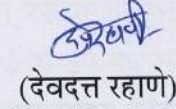 (देवदत्त रहाणे)